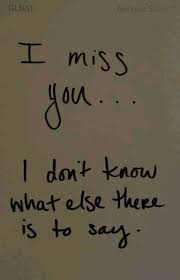 I miss
you...
I don't know
what else there
is to say.